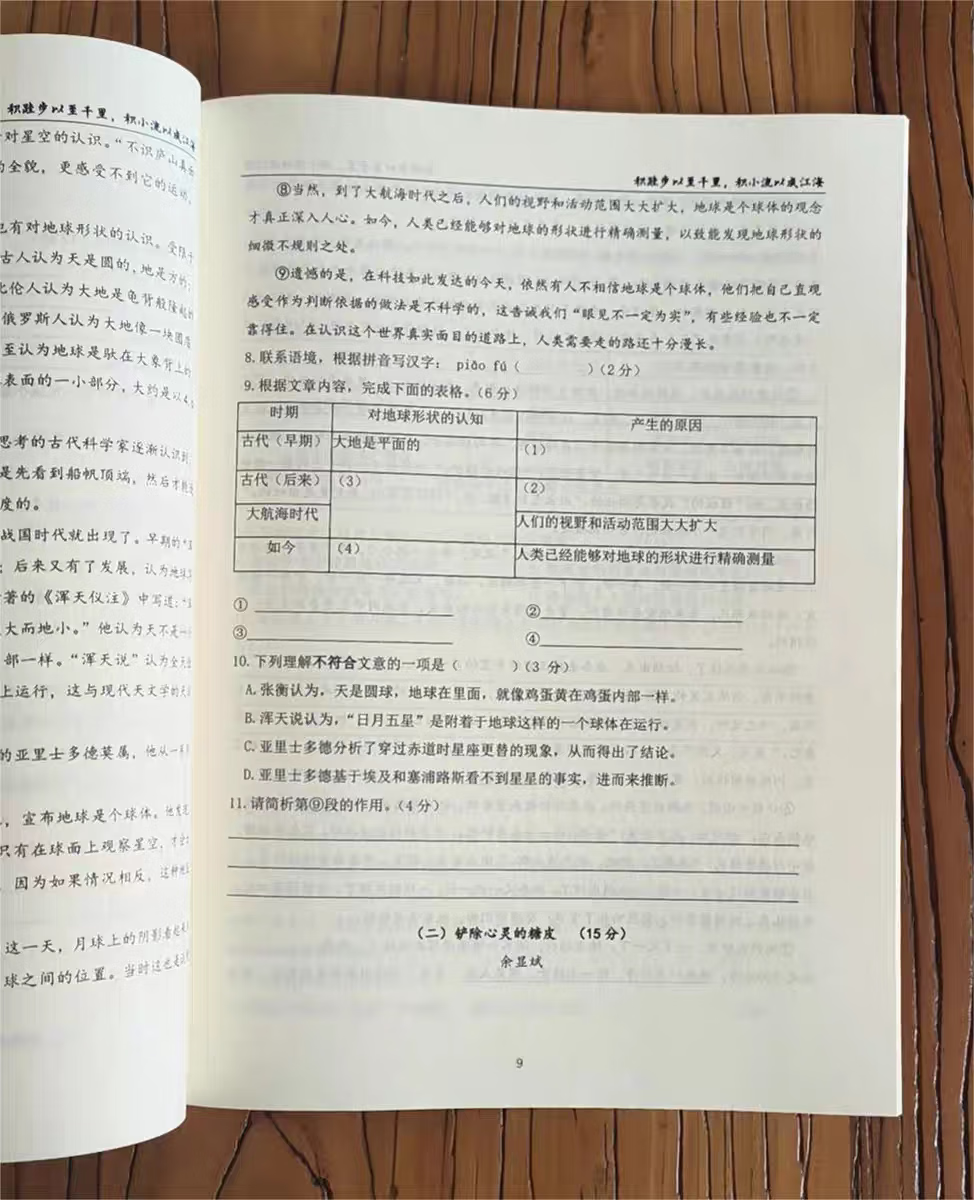 积跬步以至千里，积小流以成江海
对星空的认识。“不识庐山真面
全貌，更感受不到它的运动，
也有对地球形状的认识。受限于
古人认为天是圆的，地是方的；
比伦人认为大地是龟背般隆起的
俄罗斯人认为大地像一块圆盾
至认为地球是驮在大象背上的
表面的一小部分，大约是以4.
思考的古代科学家逐渐认识到
是先看到船帆顶端，然后才能
度的。
战国时代就出现了。早期的“
；后来又有了发展，认为地球
著的《浑天仪注》中写道：“
大而地小。”他认为天不是一
部一样。“浑天说”认为全天
上运行，这与现代天文学的天
的亚里士多德莫属，他从一
，宣布地球是个球体。他发
只有在球面上观察星空，才
因为如果情况相反，这种
这一天，月球上的阴影看起来
球之间的位置。当时这也是
积跬步以至千里，积小流以成江海
⑧当然，到了大航海时代之后，人们的视野和活动范围大大扩大，地球是个球体的观念
才真正深入人心。如今，人类已经能够对地球的形状进行精确测量，以致能发现地球形状的
细微不规则之处。
⑨遗憾的是，在科技如此发达的今天，依然有人不相信地球是个球体，他们把自己直观
感受作为判断依据的做法是不科学的，这告诫我们“眼见不一定为实”，有些经验也不一定
靠得住。在认识这个世界真实面目的道路上，人类需要走的路还十分漫长。
8.联系语境，根据拼音写汉字： piāo fú（ ）(2分)
9.根据文章内容，完成下面的表格。(6分)
时期 对地球形状的认知 产生的原因
古代（早期） 大地是平面的 （1）
古代（后来） （3） （2）
大航海时代 人们的视野和活动范围大大扩大
如今 （4） 人类已经能够对地球的形状进行精确测量
① ②
③ ④
10.下列理解不符合文意的一项是（ ）(3分)
A.张衡认为，天是圆球，地球在里面，就像鸡蛋黄在鸡蛋内部一样。
B.浑天说认为，“日月五星”是附着于地球这样的一个球体在运行。
C.亚里士多德分析了穿过赤道时星座更替的现象，从而得出了结论。
D.亚里士多德基于埃及和塞浦路斯看不到星星的事实，进而来推断。
11.请简析第⑨段的作用。(4分)
（二）铲除心灵的糖皮 （15分）
余显斌
9